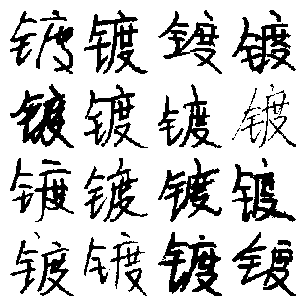 镀镀镀镀
镀镀镀镀
镀镀镀镀
镀镀镀镀